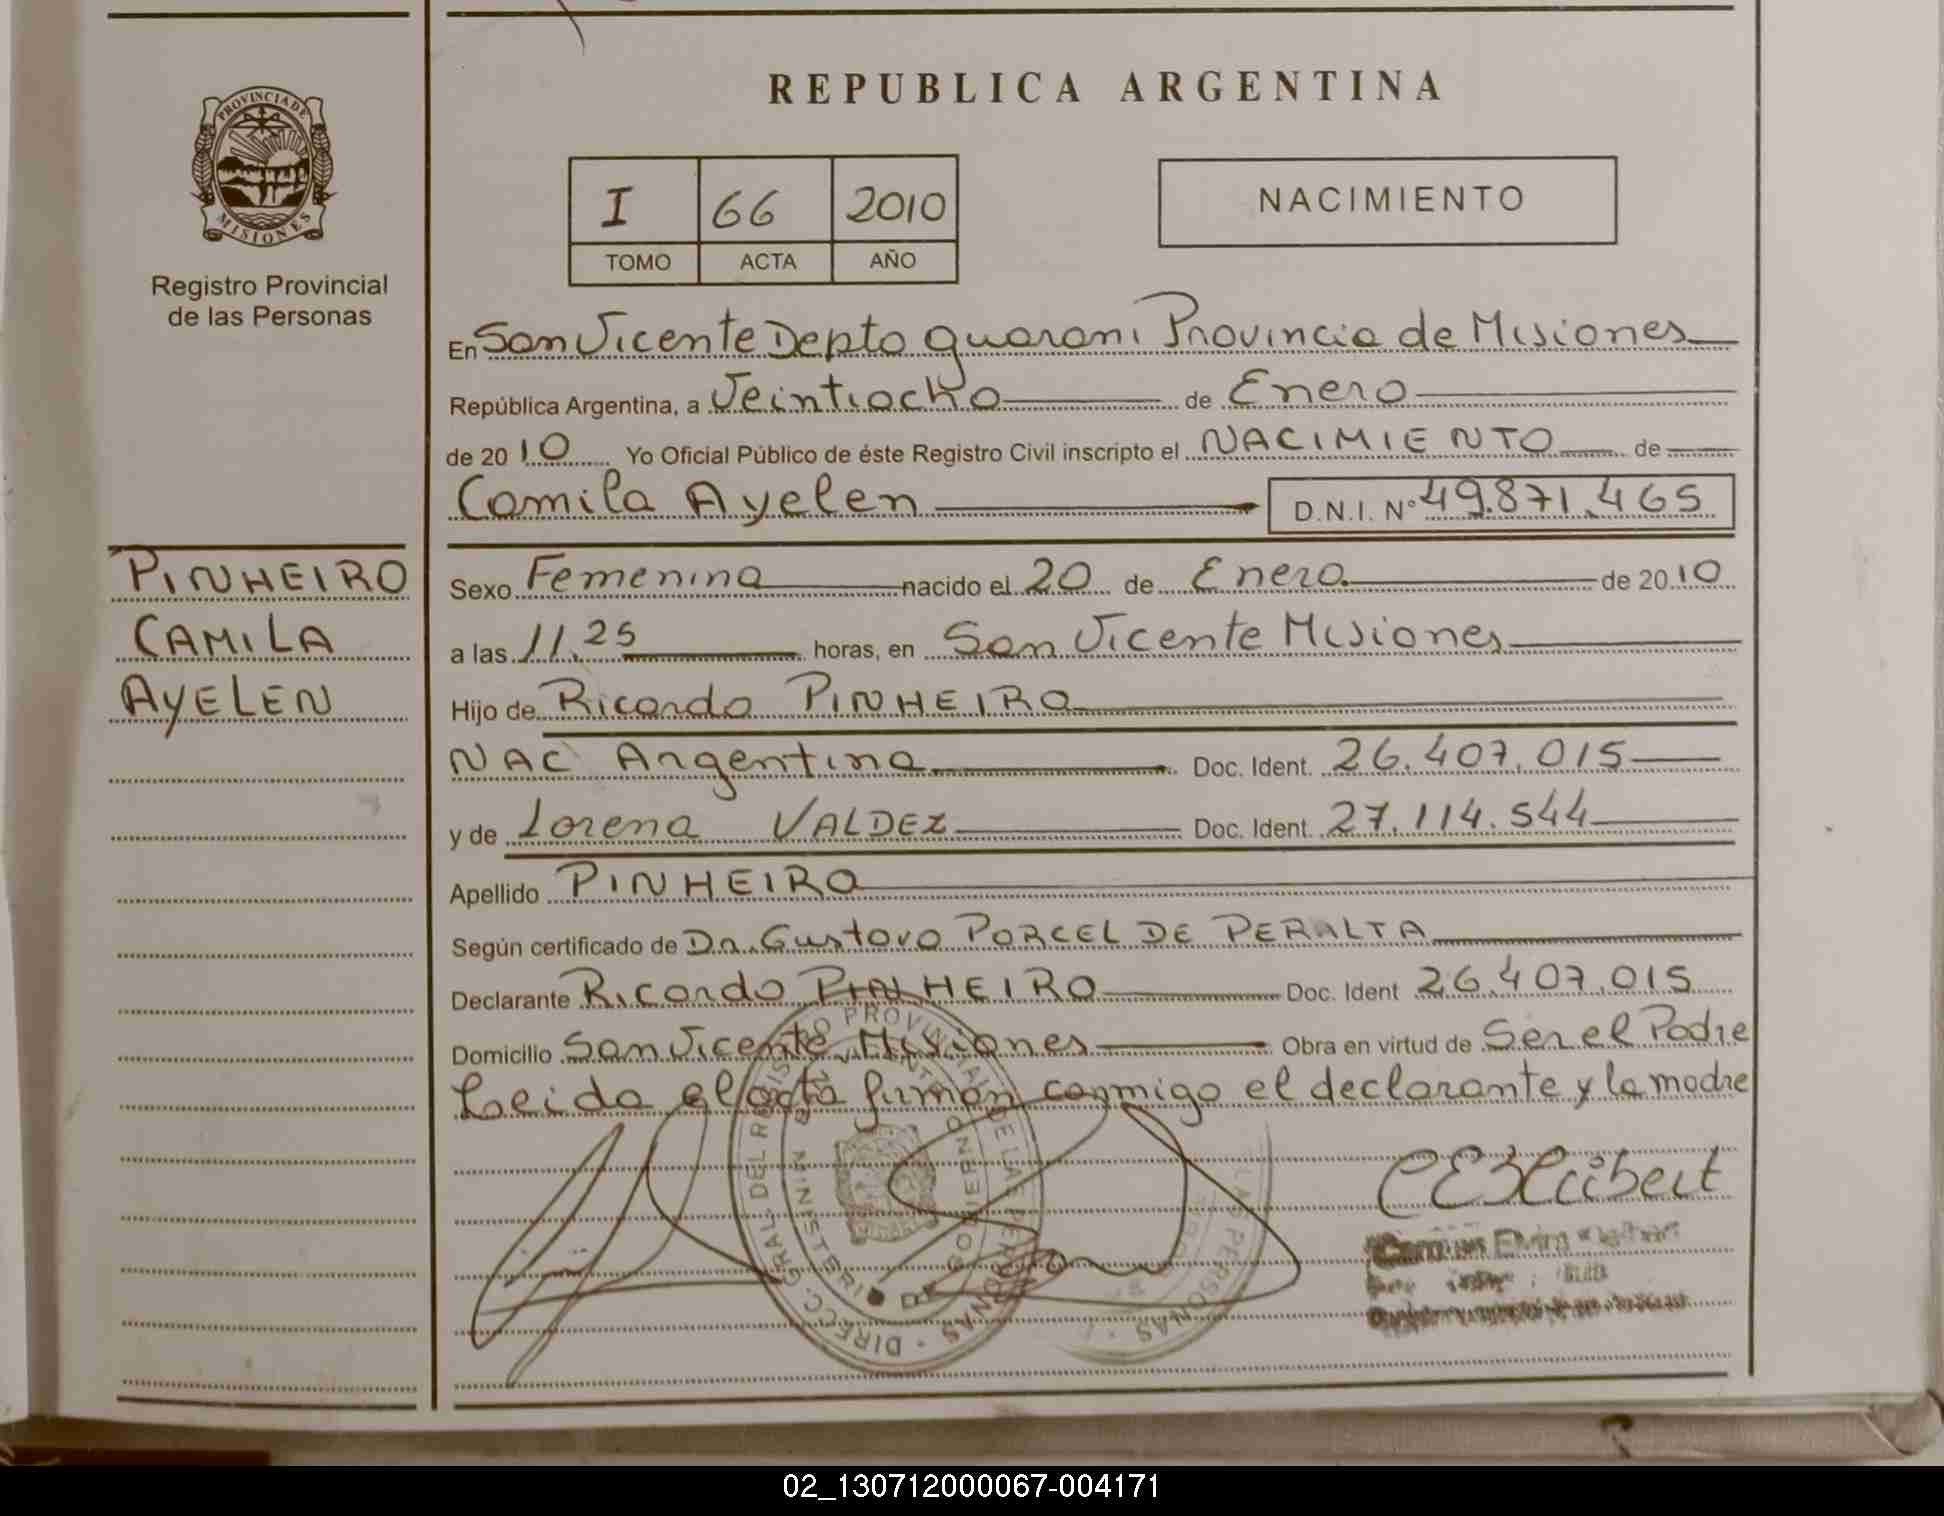 REPUBLICA ARGENTINA
PROVINCIA DE
MISIONES
Registro Provincial
de las Personas
I 66 2010
TOMO ACTA AÑO
NACIMIENTO
En San Vicente Depto guarani Provincia de Misiones
República Argentina, a Veintiocho de Enero
de 2010 Yo Oficial Público de éste Registro Civil inscripto el NACIMIENTO de
Camila Ayelen D.N.I. Nº 49.871.465
PINHEIRO
CAMILA
AYELEN
Sexo Femenina nacido el 20 de Enero de 2010
a las 11.25 horas, en San Vicente Misiones
Hijo de Ricardo PINHEIRO
NAC Argentina Doc. Ident. 26.407.015
y de Lorena VALDEZ Doc. Ident. 27.114.544
Apellido PINHEIRO
Según certificado de Dr. Gustavo PORCEL DE PERALTA
Declarante Ricardo PINHEIRO Doc. Ident 26.407.015
Domicilio San Vicente Misiones Obra en virtud de Ser el Padre
Leida el acta firman conmigo el declarante y la madre
DIRECC. GRAL. DEL REGISTRO PROVINCIAL DE LAS PERSONAS
MINISTERIO DE GOBIERNO
LAS PERSONAS
02_130712000067-004171